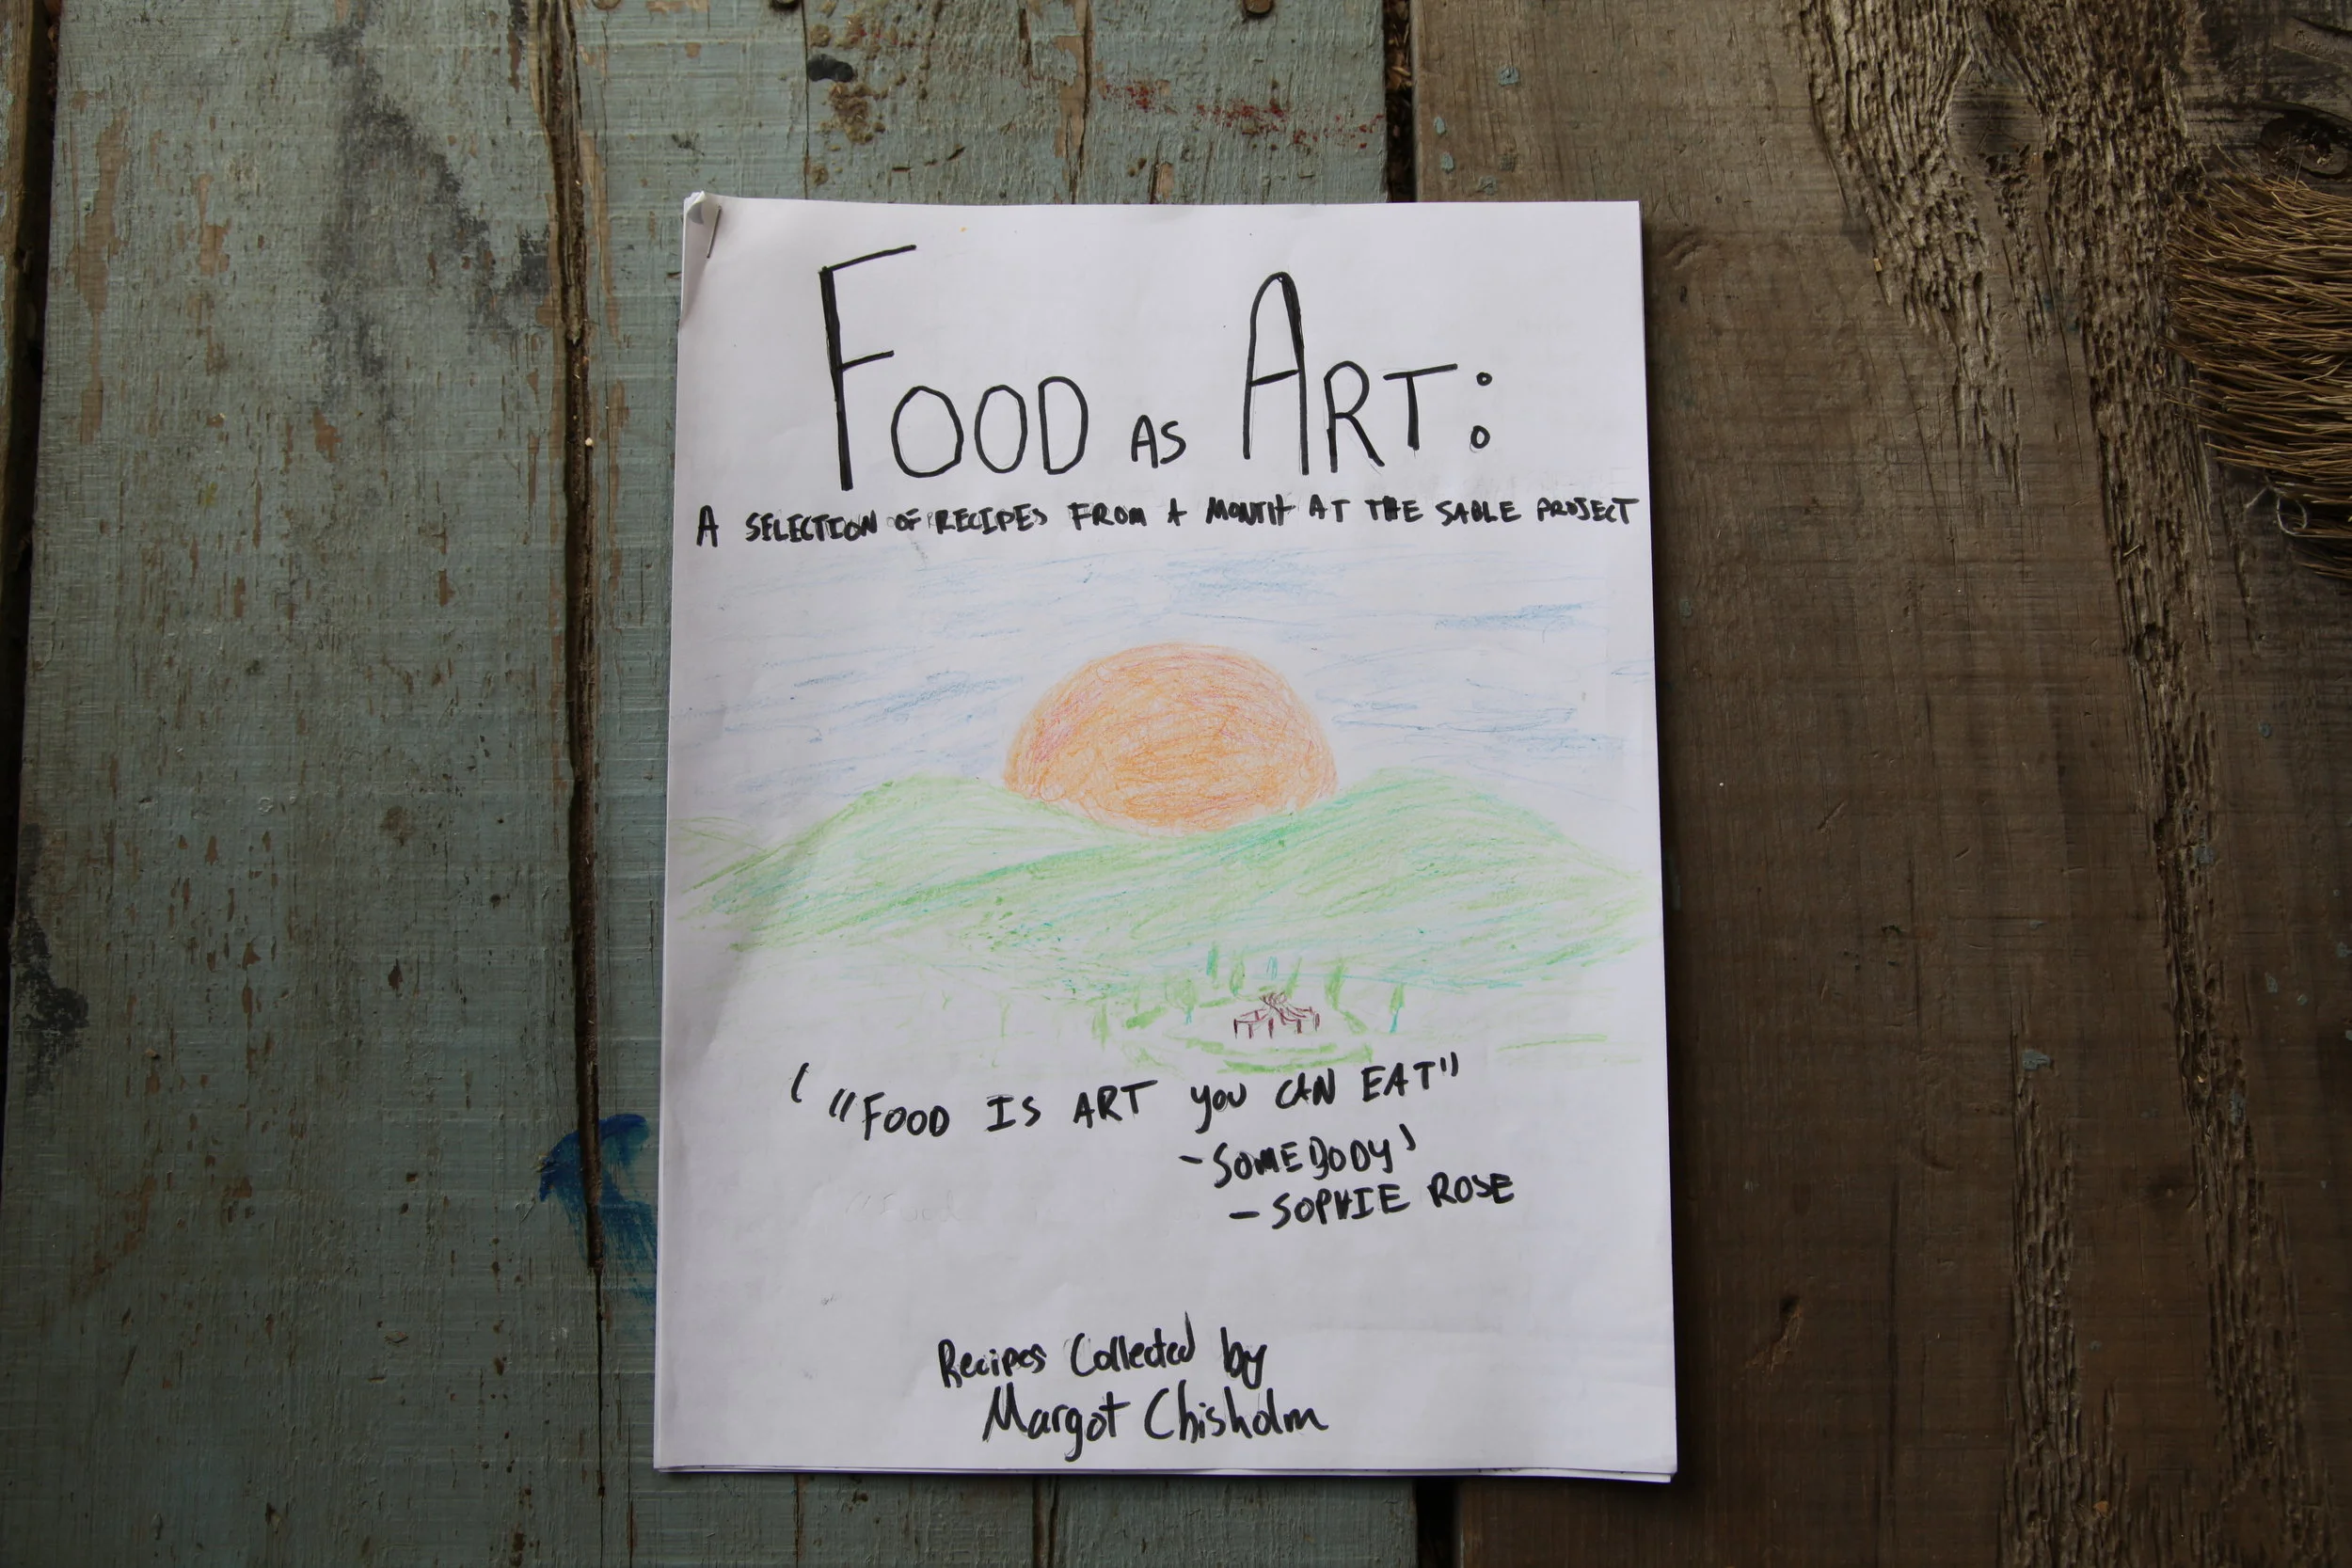 FOOD AS ART:
A SELECTION OF RECIPES FROM A MONTH AT THE SABLE PROJECT
' "FOOD IS ART YOU CAN EAT"
- SOMEBODY'
- SOPHIE ROSE
Recipes Collected by
Margot Chisholm